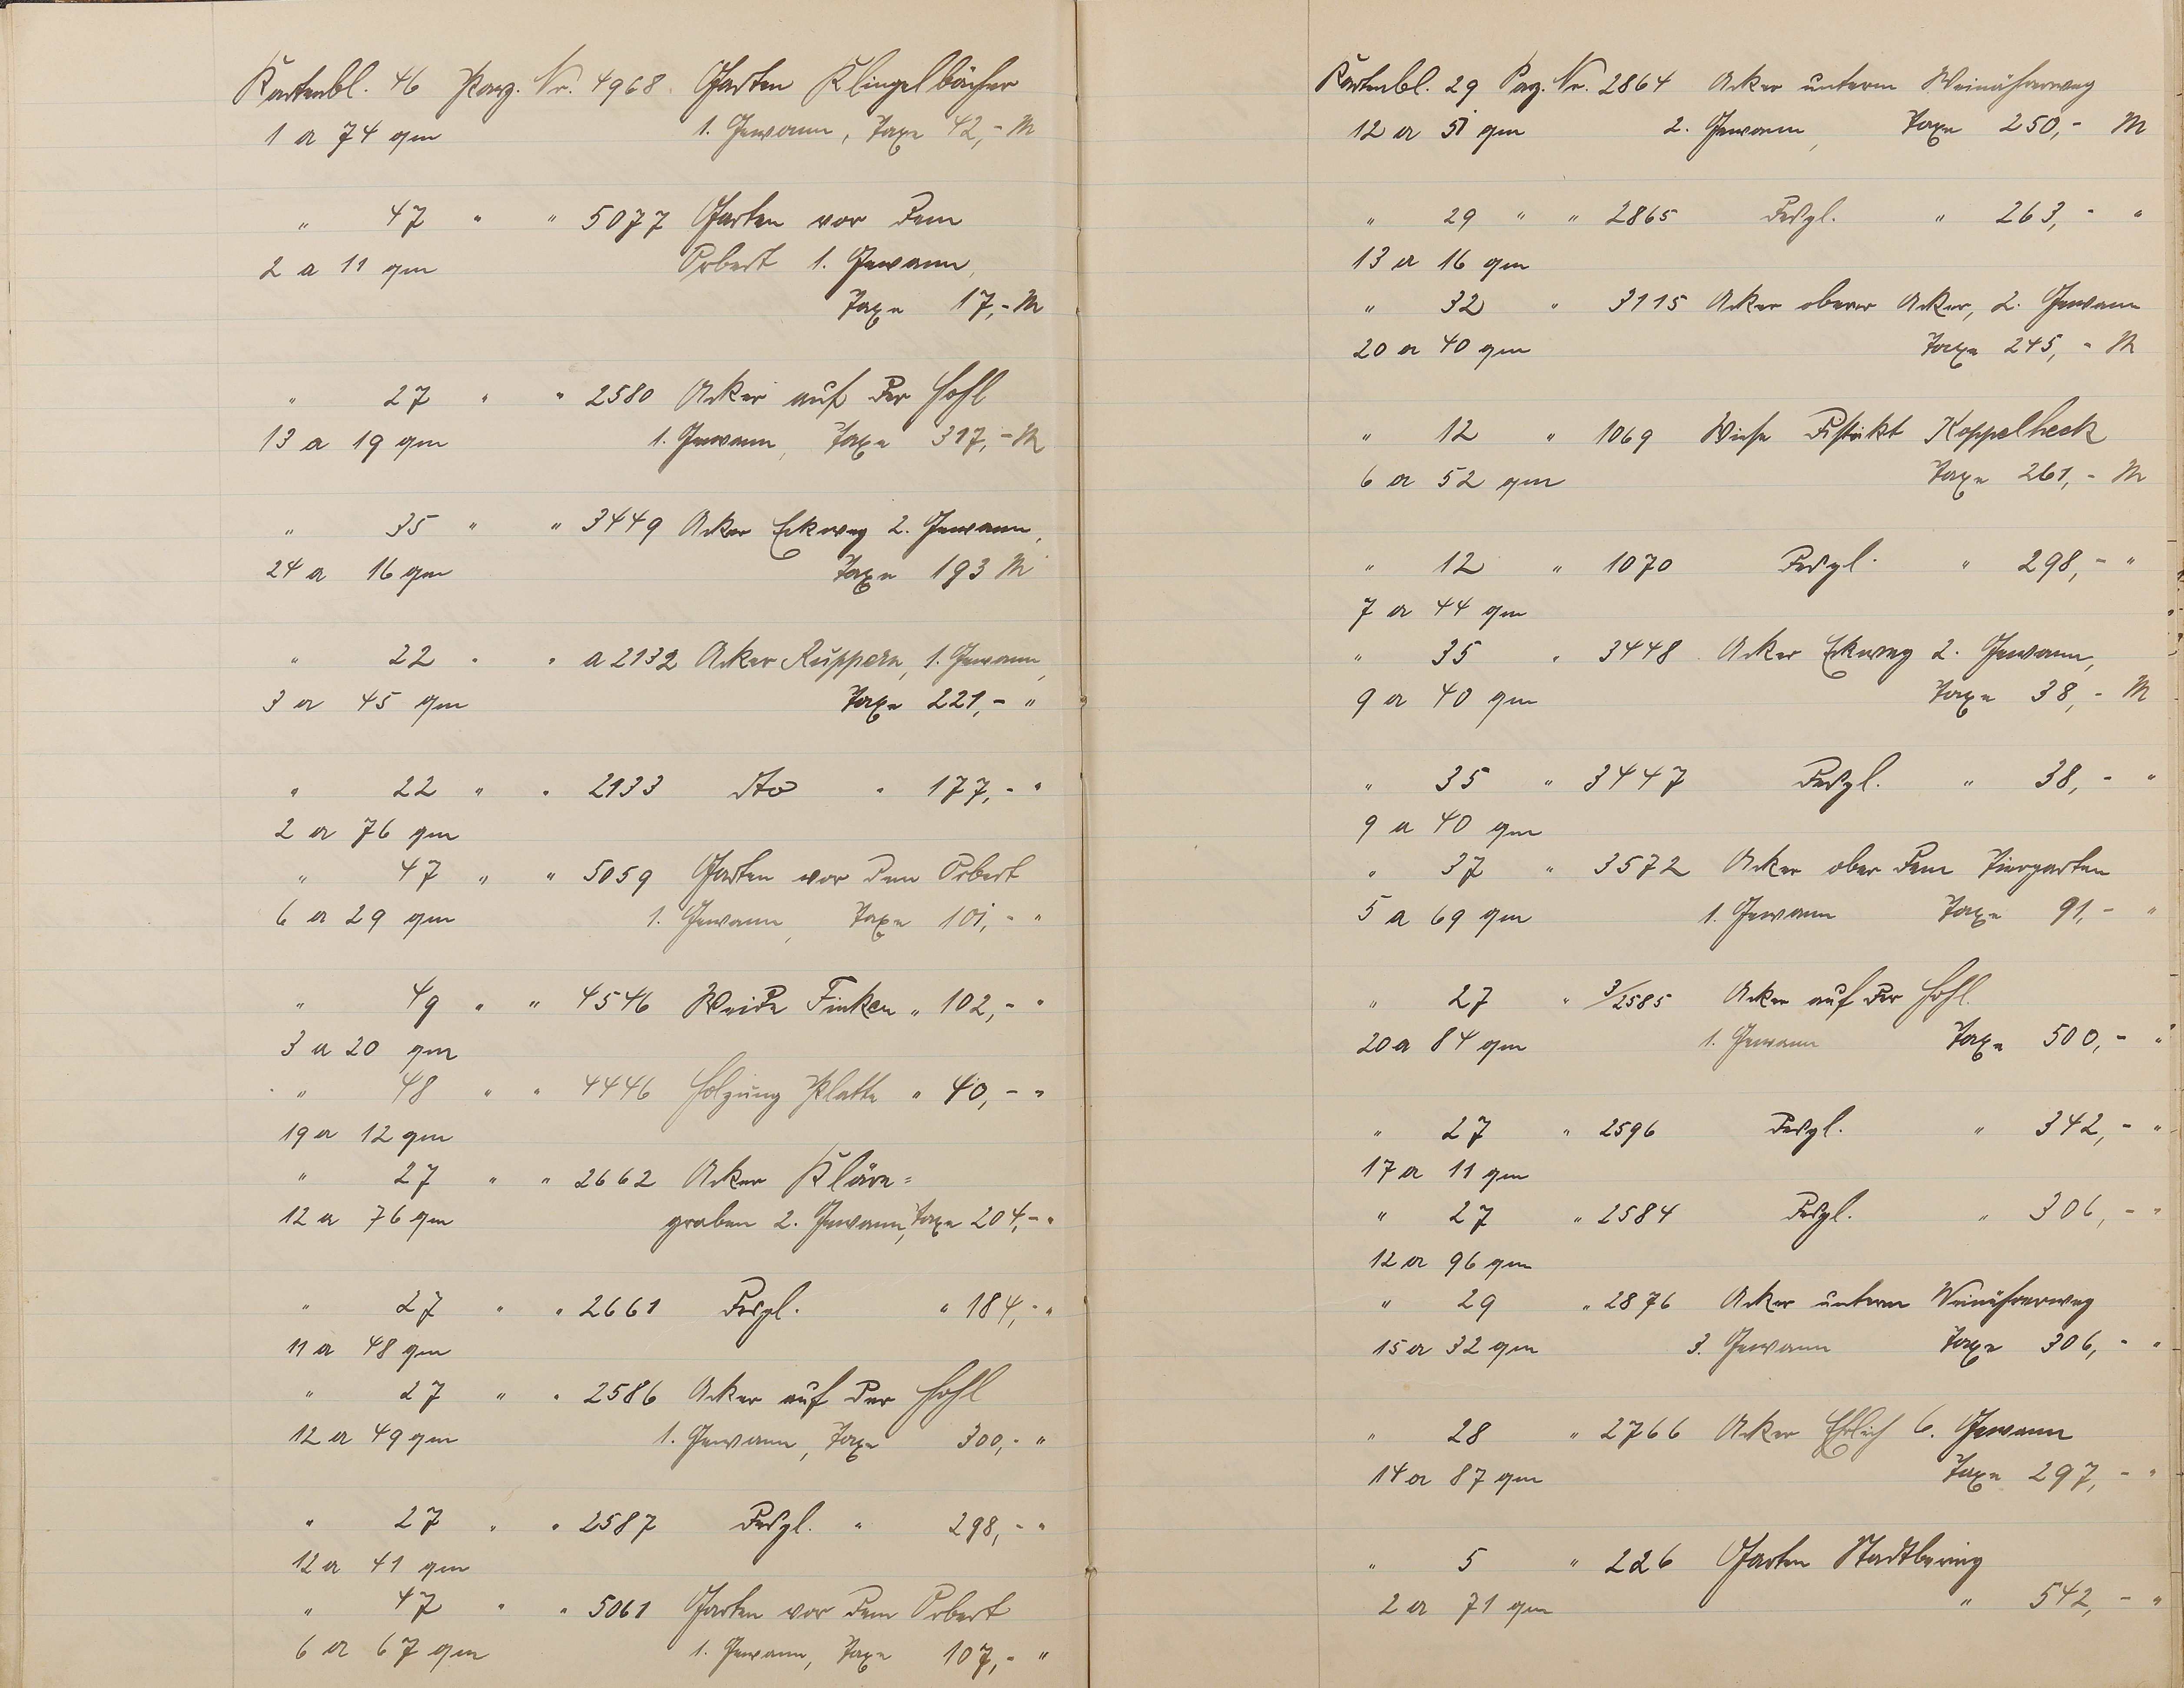 Kartenbl. 46 Parz. Nr. 4968. Garten Klingelbächer
1 a 74 qm 1. Gewann, Taxe 42,- M
" 47 " " 5077 Garten vor dem
2 a 11 qm Orbert 1. Gewann,
Taxe 17,- M
" 27 " " 2580 Acker auf der Hohl
13 a 19 qm 1. Gewann, Taxe 317,- M
" 35 " " 3449 Acker Eckweg 2. Gewann,
24 a 16 qm Taxe 193 M
" 22 " " a 2132 Acker Ruppern, 1. Gewann,
3 a 45 qm Taxe 221,- "
" 22 " " 2133 dto " 177,- "
2 a 76 qm
" 47 " " 5059 Garten vor dem Orbert
6 a 29 qm 1. Gewann, Taxe 101,- "
" 49 " " 4546 Weide Finken " 102,- "
3 a 20 qm
" 48 " " 4446 Holzung Platte " 40,- "
19 a 12 qm
" 27 " " 2662 Acker Kläre=
12 a 76 qm graben 2. Gewann, Taxe 204,- "
" 27 " " 2661 Desgl. " 184,- "
11 a 48 qm
" 27 " " 2586 Acker auf der Hohl
12 a 49 qm 1. Gewann, Taxe 300,- "
" 27 " " 2587 Desgl. " 298,- "
12 a 41 qm
" 47 " " 5061 Garten vor dem Orbert
6 a 67 qm 1. Gewann, Taxe 107,- "
Kartenbl. 29 Parz. Nr. 2864 Acker unterm Weinährerweg
12 a 51 qm 2. Gewann, Taxe 250,- M
" 29 " " 2865 Desgl. " 263,- "
13 a 16 qm
" 32 " 3115 Acker oberer Acker, 2. Gewann
20 a 40 qm Taxe 245,- M
" 12 " 1069 Wiese Distrikt Koppelheck
6 a 52 qm Taxe 261,- M
" 12 " 1070 Desgl. " 298,- "
7 a 44 qm
" 35 " 3448 Acker Eckweg 2. Gewann,
9 a 40 qm Taxe 38,- M
" 35 " 3447 Desgl. " 38,- "
9 a 40 qm
" 37 " 3572 Acker ober dem Tiergarten
5 a 69 qm 1. Gewann Taxe 91,- "
" 27 " 3/2585 Acker auf der Hohl.
20 a 84 qm 1. Gewann Taxe 500,- "
" 27 " 2596 Desgl. " 342,- "
17 a 11 qm
" 27 " 2584 Desgl. " 306,- "
12 a 96 qm
" 29 " 2876 Acker unterm Weinährerweg
15 a 32 qm 3. Gewann Taxe 306,- "
" 28 " 2766 Acker Ehlich 6. Gewann
14 a 87 qm Taxe 297,- "
" 5 " 226 Garten Stadtbering
2 a 71 qm " 542,- "